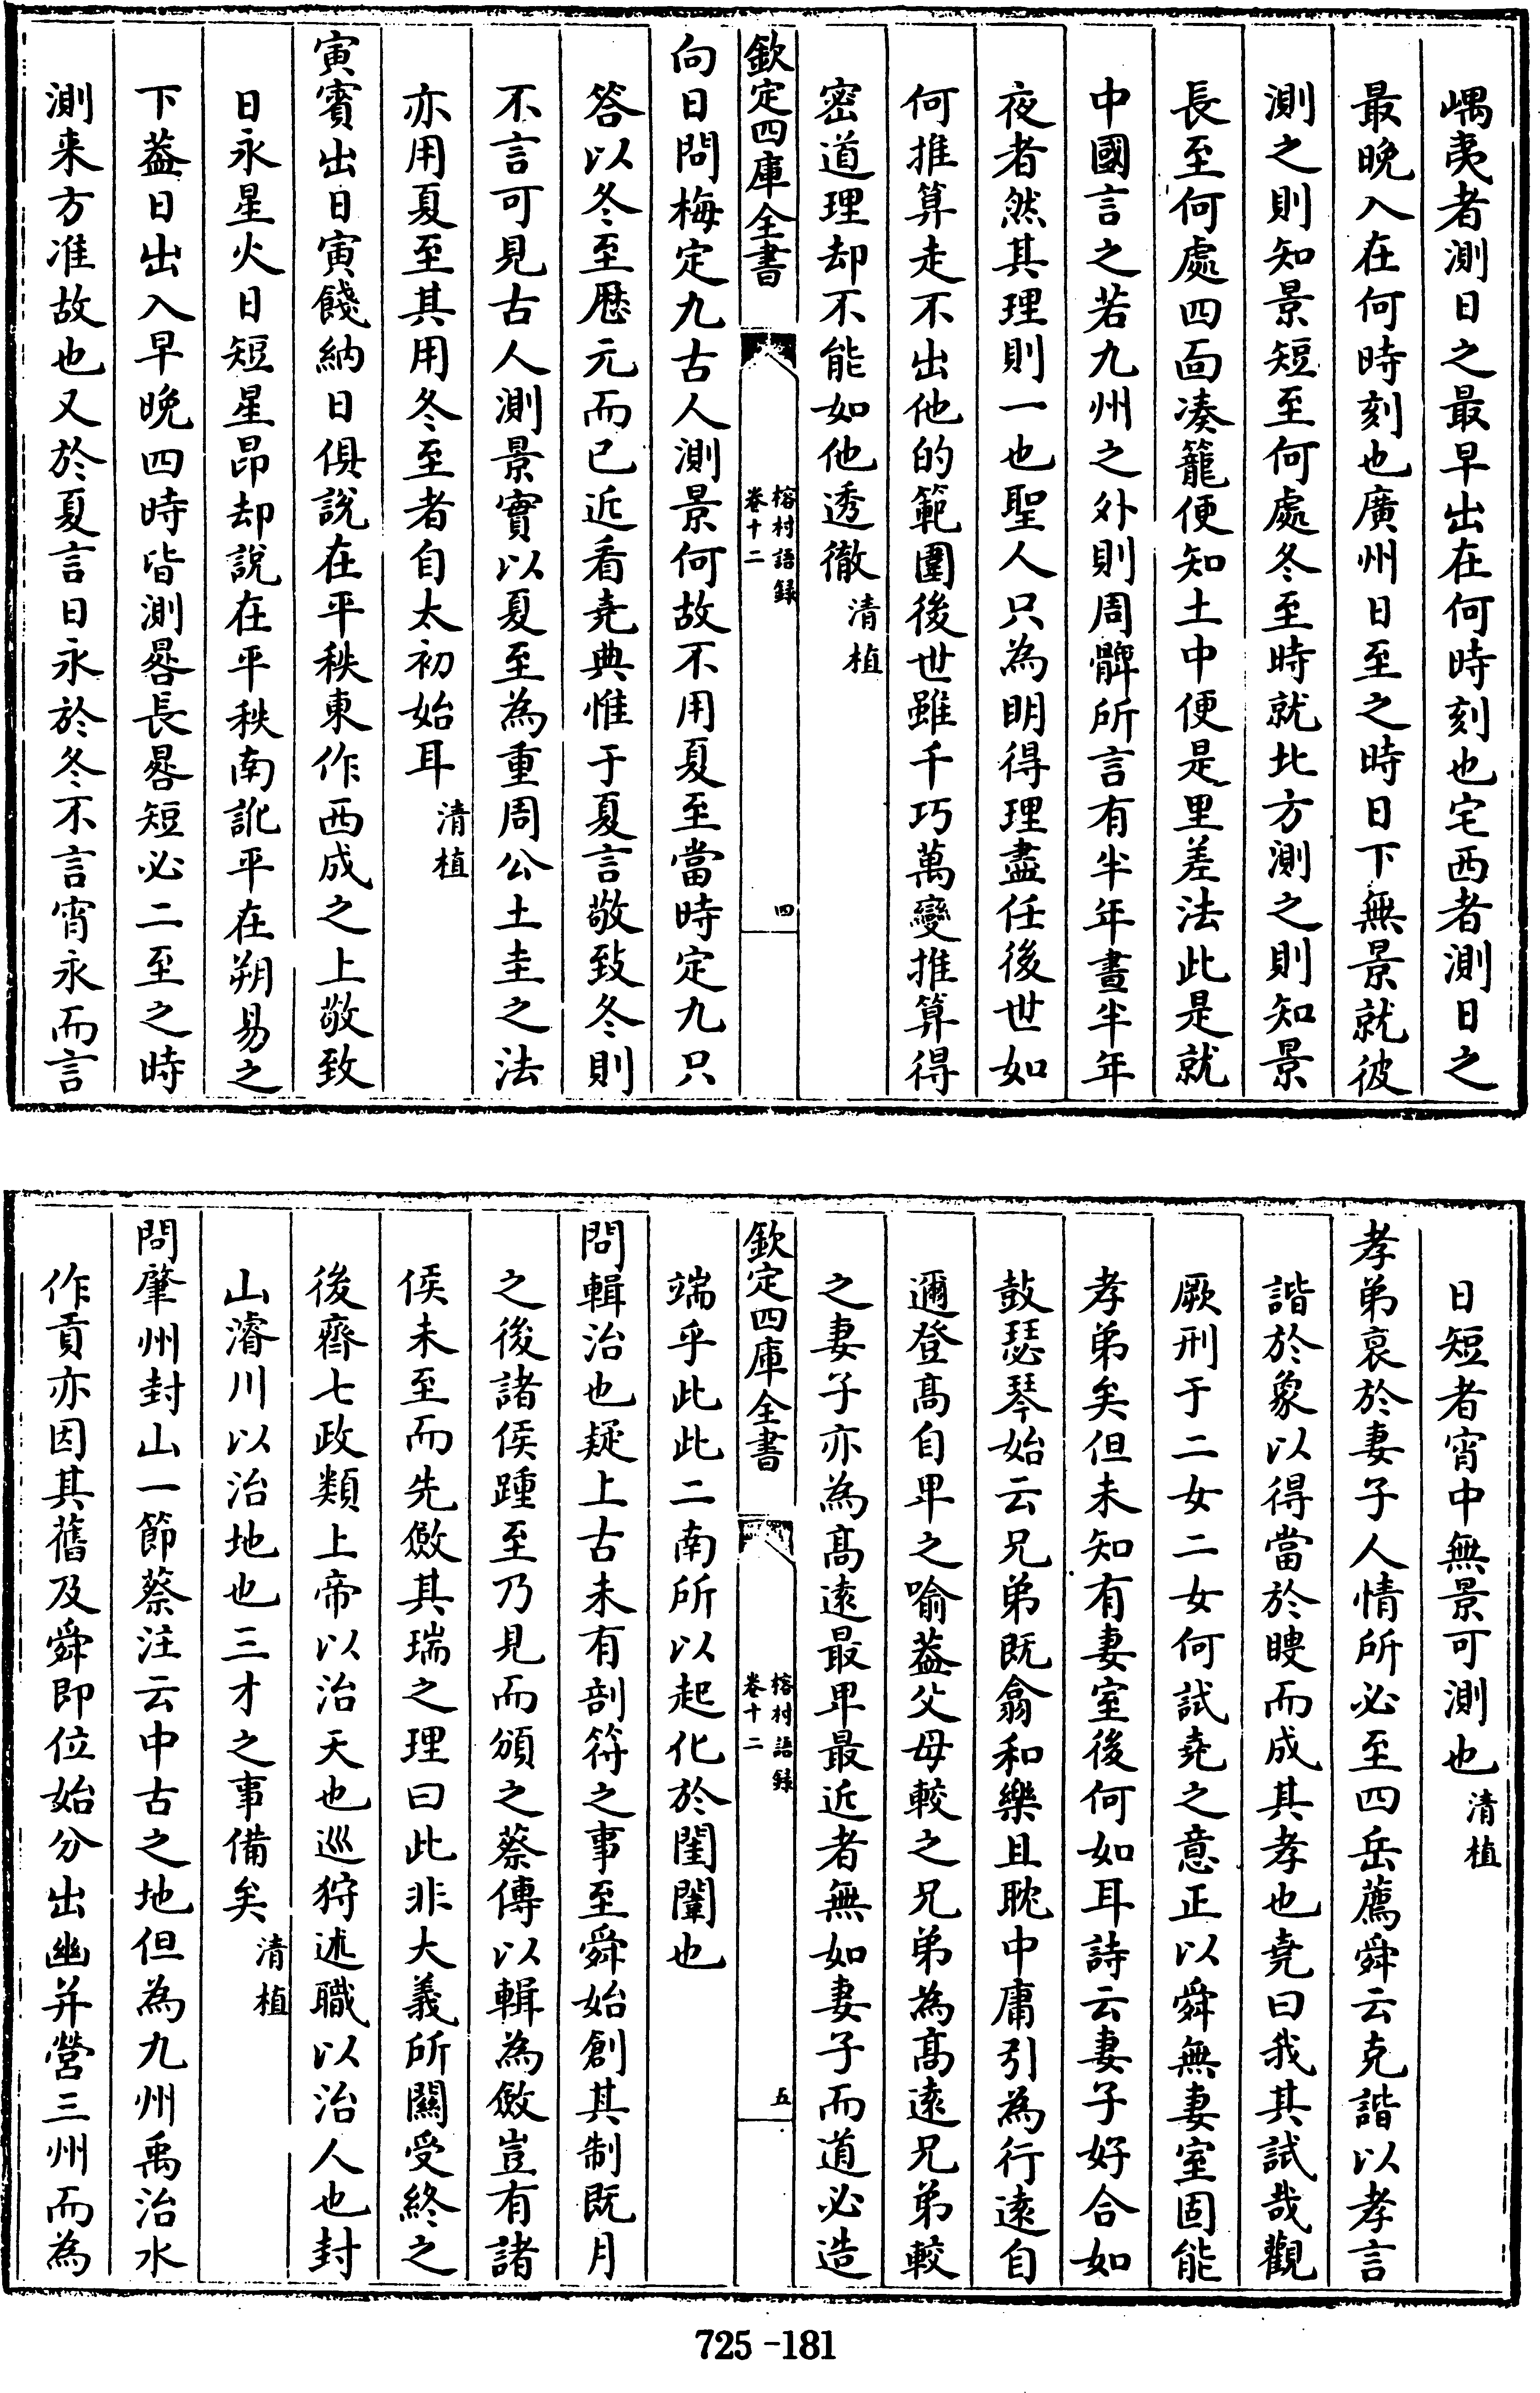 嵎夷者測日之最早出在何時刻也宅西者測日之
最晩入在何時刻也廣州日至之時日下無景就彼
測之則知景短至何處冬至時就北方測之則知景
長至何處四面凑籠便知土中便是里差法此是就
中國言之若九州之外則周髀所言有半年晝半年
夜者然其理則一也聖人只為明得理盡任後世如
何推算走不出他的範圍後世雖千巧萬變推算得
密道理却不能如他透徹清植
欽定四庫全書
榕村語録
卷十二
四
向日問梅定九古人測景何故不用夏至當時定九只
答以冬至厯元而已近看堯典惟于夏言敬致冬則
不言可見古人測景實以夏至為重周公土圭之法
亦用夏至其用冬至者自太初始耳清植
寅賓出日寅餞納日俱說在平秩東作西成之上敬致
日永星火日短星昴却說在平秩南訛平在朔易之
下葢日出入早晩四時皆測晷長晷短必二至之時
測来方准故也又於夏言日永於冬不言宵永而言
日短者宵中無景可測也清植
孝弟衰於妻子人情所必至四岳薦舜云克諧以孝言
諧於象以得當於瞍而成其孝也堯曰我其試哉觀
厥刑于二女二女何試堯之意正以舜無妻室固能
孝弟矣但未知有妻室後何如耳詩云妻子好合如
鼓瑟琴始云兄弟既翕和樂且耽中庸引為行逺自
邇登髙自卑之喻葢父母較之兄弟為髙逺兄弟較
之妻子亦為髙逺最卑最近者無如妻子而道必造
欽定四庫全書
榕村語録
卷十二
五
端乎此此二南所以起化於閨闈也
問輯治也疑上古未有剖符之事至舜始創其制既月
之後諸侯踵至乃見而頒之蔡傳以輯為斂豈有諸
侯未至而先斂其瑞之理曰此非大義所關受終之
後齊七政類上帝以治天也巡狩述職以治人也封
山濬川以治地也三才之事備矣清植
問肇州封山一節蔡注云中古之地但為九州禹治水
作貢亦因其舊及舜即位始分出幽并營三州而為
725-181